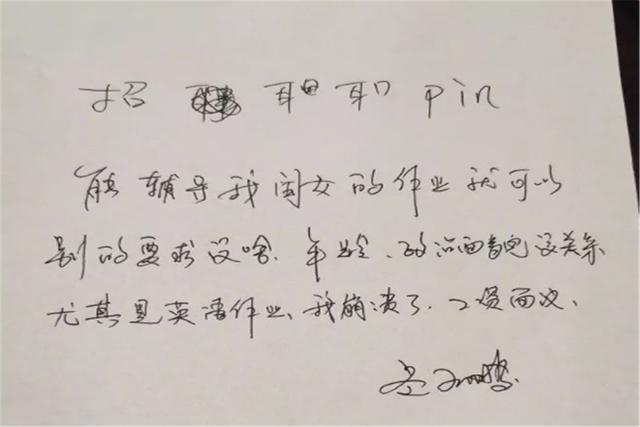 招 Pin
能辅导我闺女的作业就可以
别的要求没啥.年龄、政治面貌没关系
尤其是英语作业、我崩溃了.工资面议、